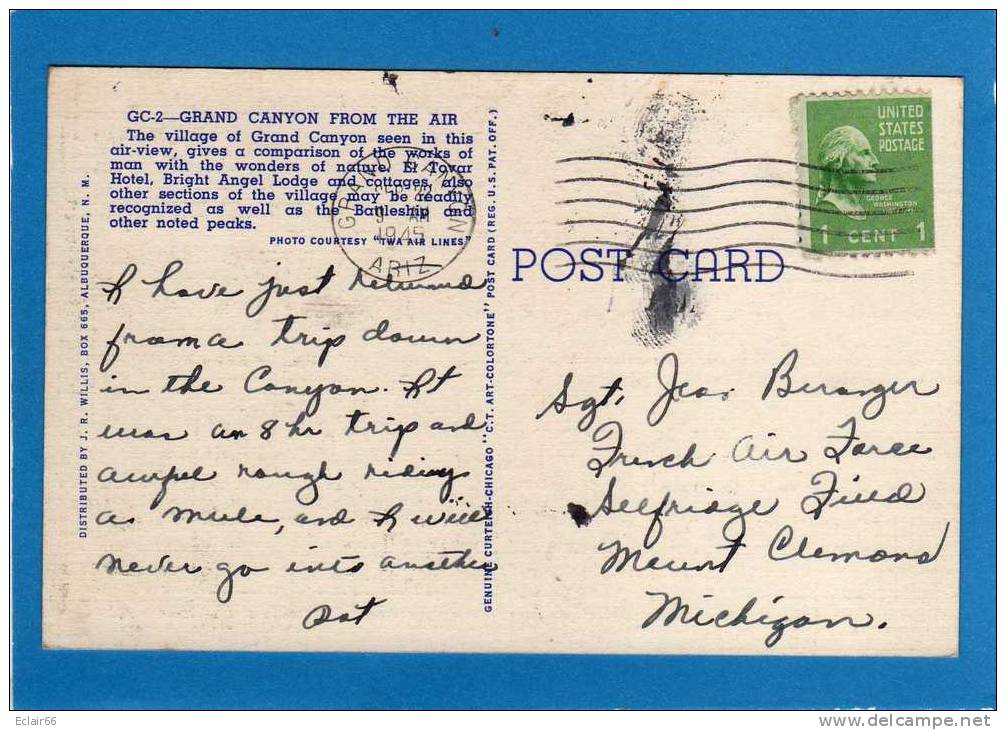 GC-2—GRAND CANYON FROM THE AIR
The village of Grand Canyon seen in this
air-view, gives a comparison of the works of
man with the wonders of nature. El Tovar
Hotel, Bright Angel Lodge and cottages, also
other sections of the village may be readily
recognized as well as the Battleship and
other noted peaks.
PHOTO COURTESY "TWA AIR LINES"
GRAND CANYON
1945
ARIZ.
I have just returned
from a trip down
in the Canyon. It
was an 8 hr trip and
awful rough riding
as mule, and I will
never go into another
Pat
DISTRIBUTED BY J. R. WILLIS, BOX 665, ALBUQUERQUE, N. M.
GENUINE CURTEICH-CHICAGO "C.T. ART-COLORTONE" POST CARD (REG. U.S. PAT. OFF.)
UNITED
STATES
POSTAGE
GEORGE
WASHINGTON
1 CENT 1
POST CARD
Sgt. Jean Beranger
French Air Force
Selfridge Field
Mount Clemons
Michigan.
Eclair66
www.delcampe.net